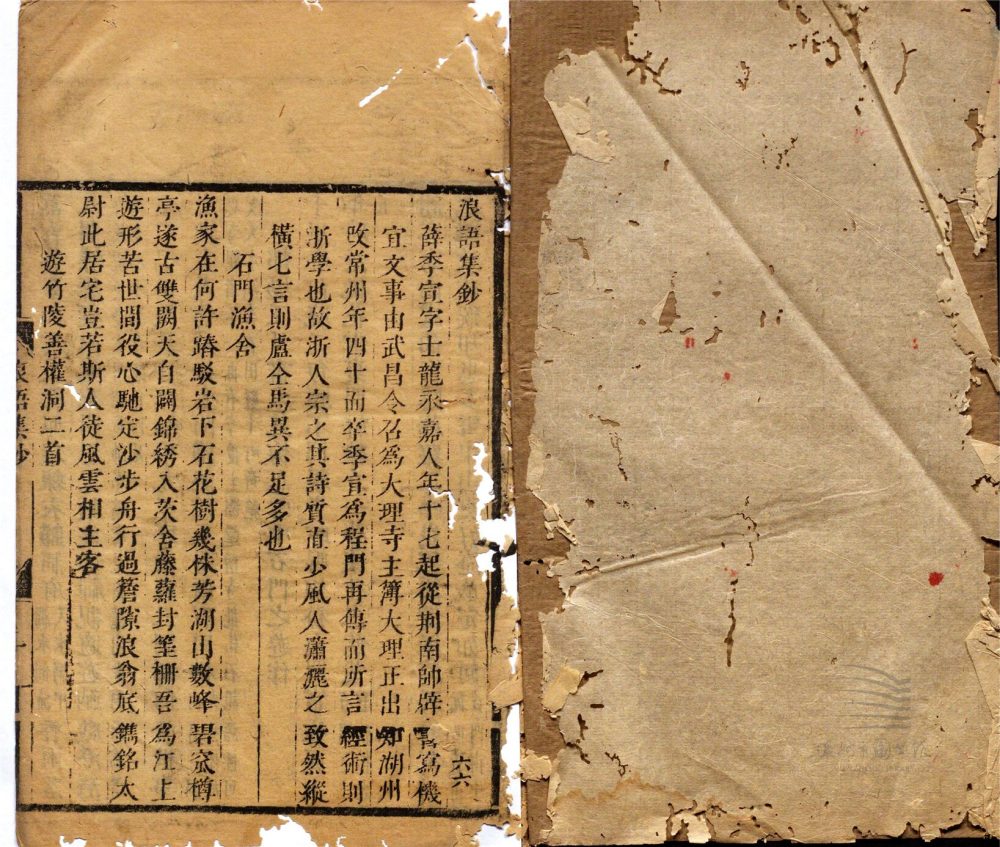 浪語集鈔
六六
薛季宣字士龍永嘉人年十七起從荆南帥辟書寫機
宜文事由武昌令召爲大理寺主簿大理正出知湖州
改常州年四十而卒季宣爲程門再傳而所言經術則
浙學也故浙人宗之其詩質直少風人瀟灑之致然縱
橫七言則盧仝馬異不足多也
石門漁舍
漁家在何許蹐駁岩下石花樹幾株芳湖山數峰碧窊樽
亭遂古雙闕天自闢錦綉入茨舍藤蘿封筀柵吾爲江上
遊形苦世間役心馳定沙步舟行過簷隙浪翁底鐫銘太
尉此居宅豈若斯人徒風雲相主客
遊竹陵善權洞二首
浪語集鈔